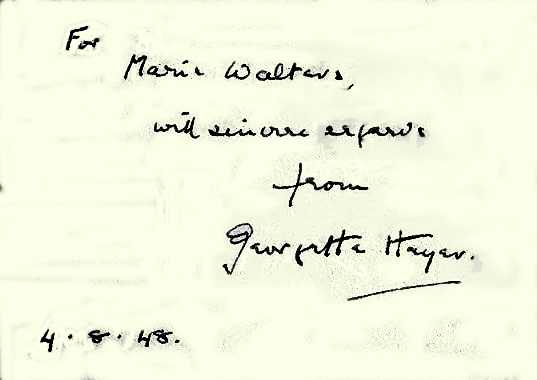 For
Marie Walters,
with sincere regards
from
Georgette Heyer.
4.8.48.